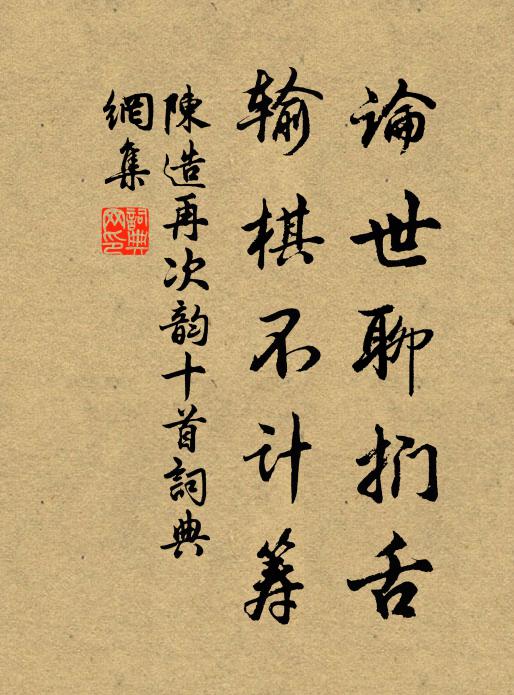 論世聊捫舌
輸棋不计筹
陳造再次韵十首詞典
網集
詞典
网印